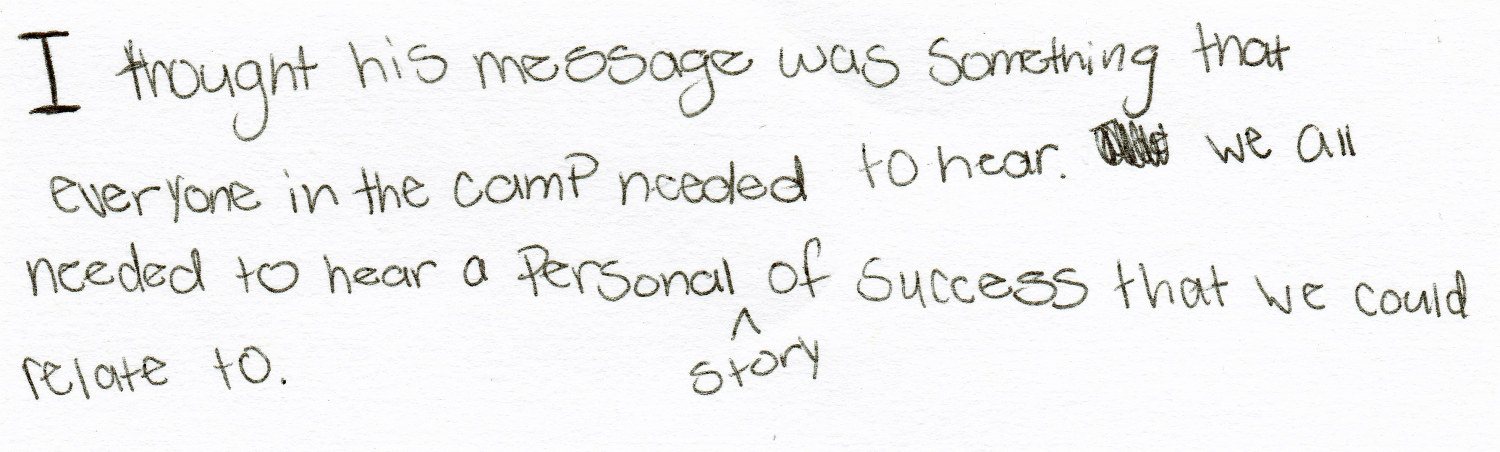 I thought his message was something that
everyone in the camp needed to hear. we all
needed to hear a personal ^ of success that we could
relate to.
story